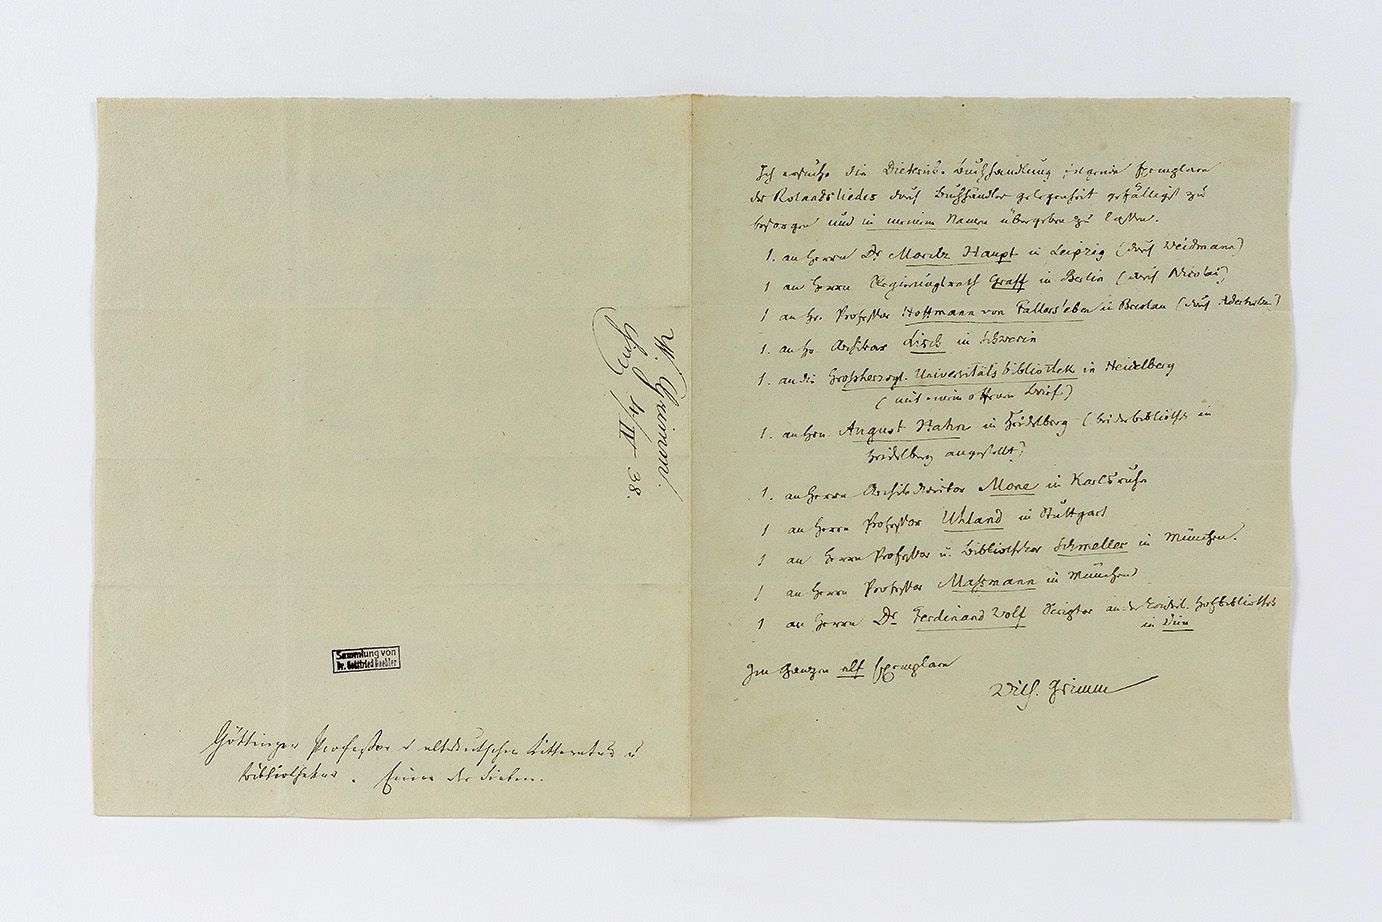 W. Grimm.
4/IV 38.
Sammlung von
Dr. Gottfried
Göttinger Professor d altdeutschen Litteratur u
Bibliothekar. Einer der Sieben.
Ich ersuche die Dieterich. Buchhandlung folgende Exemplare
des Rolandsliedes durch Buchhändler gelegenheit gefälligst zu
besorgen und in meinem Namen übergeben zu lassen.
1. an Herrn Dr Moritz Haupt in Leipzig (durch Weidmann)
1 an Herrn Regierungsrath Graff in Berlin (durch Nicolai)
1 an Hr. Professor Hoffmann von Fallersleben in Breslau (durch Aderholz)
1. an Hr Archivar Lisch in Schwerin
1. an die Großherzogl. Universitäts bibliothek in Heidelberg
(mit einem offenen Brief)
1. an Hrn August Hahn in Heidelberg (bei der bibliothek in
Heidelberg angestellt)
1. an Herrn Archivdirector Mone in Karlsruhe
1 an Herrn Professor Uhland in Stuttgart
1 an Herrn Professor u. Bibliothekar Schmeller in München.
1 an Herrn Professor Maßmann in München
1 an Herrn Dr Ferdinand Wolf Scriptor an der Hofbibliothek
in Wien
Im Ganzen elf Exemplare
Wilh. Grimm